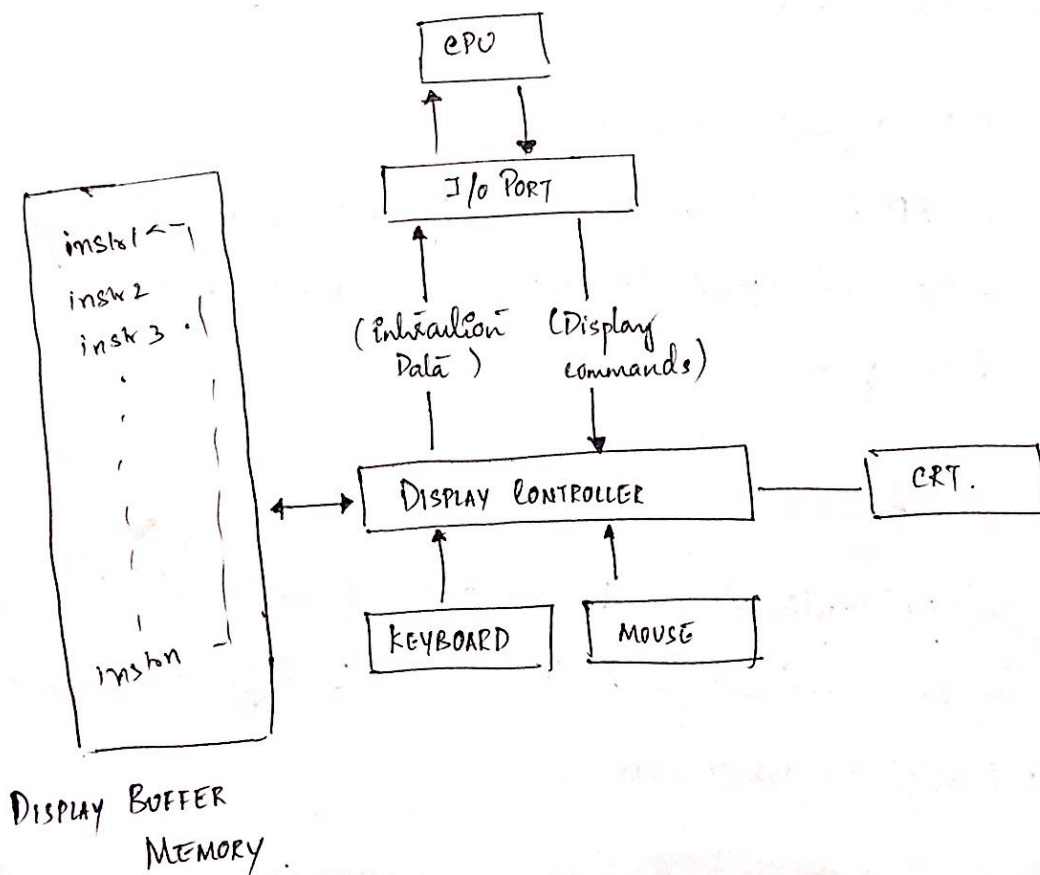 CPU
I/O PORT
instr1
instr2
instr3
instrn
(interaction
Data)
(Display
commands)
DISPLAY CONTROLLER
CRT.
KEYBOARD
MOUSE
DISPLAY BUFFER
MEMORY.